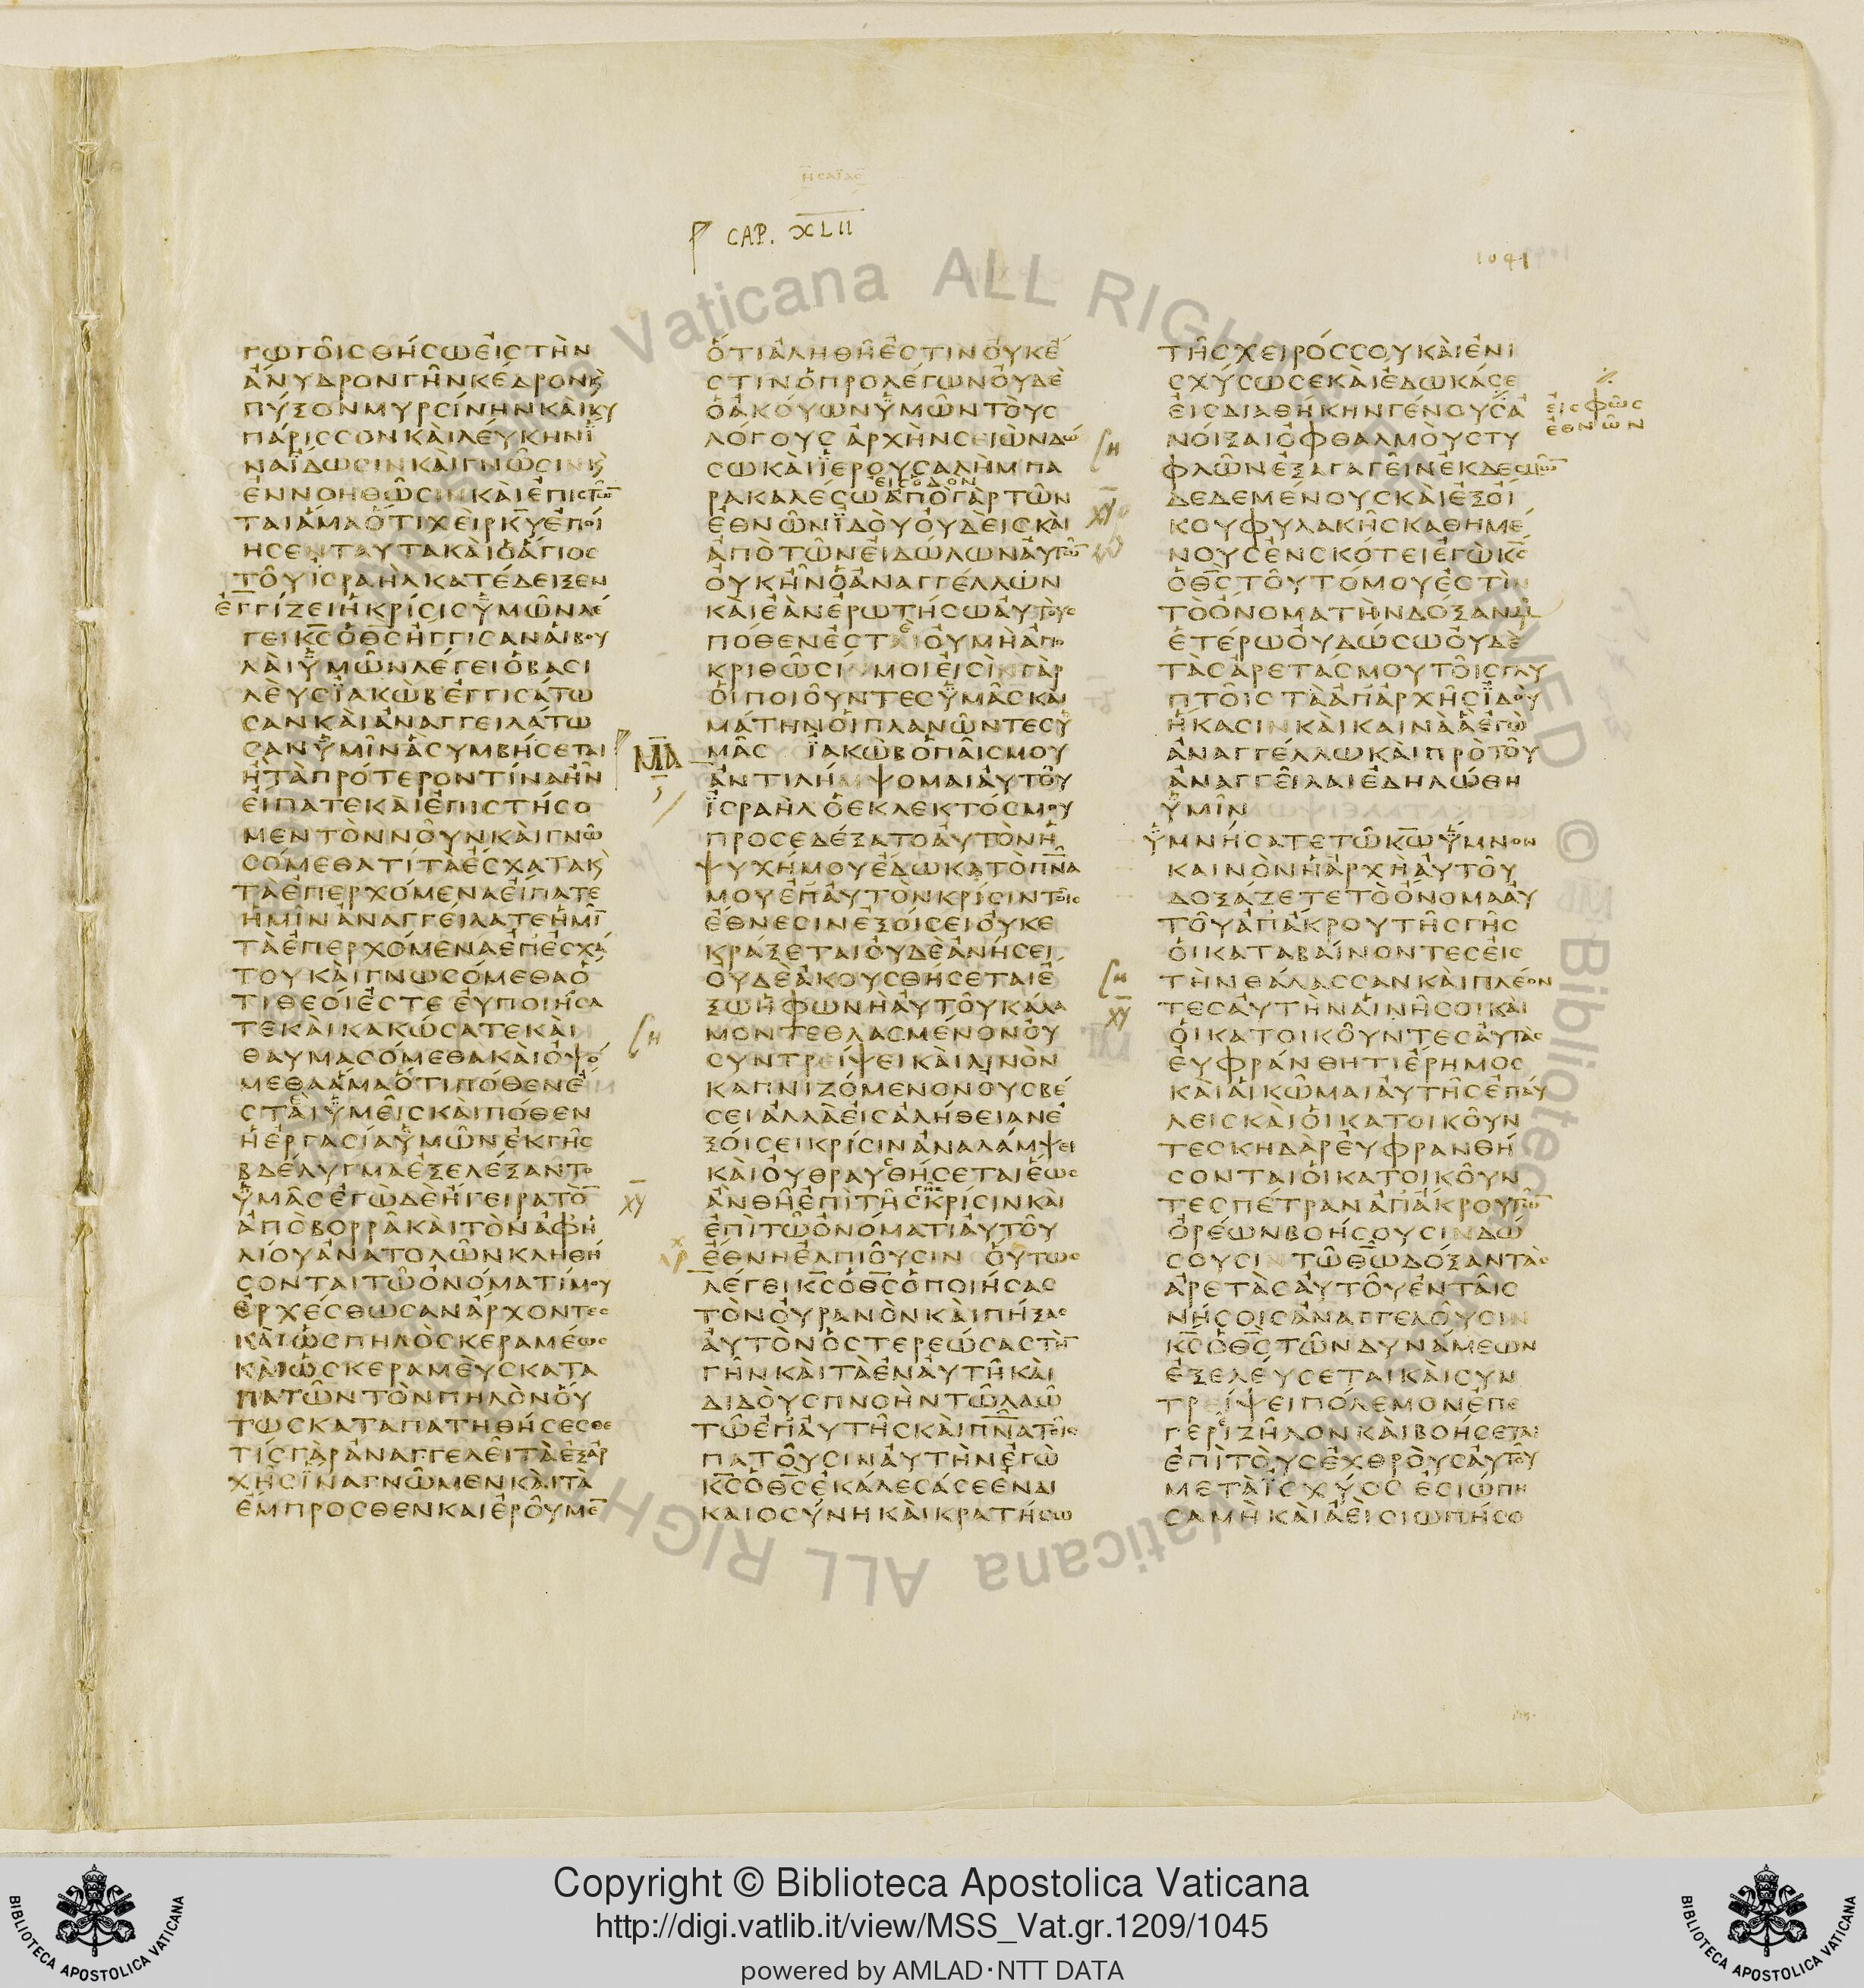 ΗΣΑΪΑΣ
CAP. XLII
1041
ΓΩΓΟΙΣΘΗΣΩΕΙΣΤΗΝ
ΑΝΥΔΡΟΝΓΗΝΚΕΔΡΟΝΚ
ΠΥΞΟΝΜΥΡΣΙΝΗΝΚΑΙΚΥ
ΠΑΡΙΣΣΟΝΚΑΙΛΕΥΚΗΝΙ
ΝΑΪΔΩΣΙΝΚΑΙΓΝΩΣΙΝΚ
ΕΝΝΟΗΘΩΣΙΝΚΑΙΕΠΙΣΤΩ
ΤΑΙΑΜΑΟΤΙΧΕΙΡΚΥΕΠΟΙ
ΗΣΕΝΤΑΥΤΑΚΑΙΟΑΓΙΟΣ
ΤΟΥΙΣΡΑΗΛΚΑΤΕΔΕΙΞΕΝ
ΕΓΓΙΖΕΙΗΚΡΙΣΙΣΥΜΩΝΛΕ
ΓΕΙΚΣΟΘΣΗΓΓΙΣΑΝΑΙΒΟΥ
ΛΑΙΥΜΩΝΛΕΓΕΙΟΒΑΣΙ
ΛΕΥΣΪΑΚΩΒΕΓΓΙΣΑΤΩ
ΣΑΝΚΑΙΑΝΑΓΓΕΙΛΑΤΩ
ΣΑΝΥΜΙΝΑΣΥΜΒΗΣΕΤΑΙ
ΗΤΑΠΡΟΤΕΡΟΝΤΙΝΑΗΝ
ΕΙΠΑΤΕΚΑΙΕΠΙΣΤΗΣΟ
ΜΕΝΤΟΝΝΟΥΝΚΑΙΓΝΩ
ΣΟΜΕΘΑΤΙΤΑΕΣΧΑΤΑΚ
ΤΑΕΠΕΡΧΟΜΕΝΑΕΙΠΑΤΕ
ΗΜΙΝΑΝΑΓΓΕΙΛΑΤΕΗΜΙ
ΤΑΕΠΕΡΧΟΜΕΝΑΕΠΕΣΧΑ
ΤΟΥΚΑΙΓΝΩΣΟΜΕΘΑΟ
ΤΙΘΕΟΙΕΣΤΕΕΥΠΟΙΗΣΑ
ΤΕΚΑΙΚΑΚΩΣΑΤΕΚΑΙ
ΘΑΥΜΑΣΟΜΕΘΑΚΑΙΟΨΟ
ΜΕΘΑΑΜΑΟΤΙΠΟΘΕΝΕ
ΣΤΑΙΥΜΕΙΣΚΑΙΠΟΘΕΝ
ΗΕΡΓΑΣΙΑΥΜΩΝΕΚΓΗΣ
ΒΔΕΛΥΓΜΑΕΞΕΛΕΞΑΝΤΟ
ΥΜΑΣΕΓΩΔΕΗΓΕΙΡΑΤΟ
ΑΠΟΒΟΡΡΑΚΑΙΤΟΝΑΦΗ
ΛΙΟΥΑΝΑΤΟΛΩΝΚΛΗΘΗ
ΣΟΝΤΑΙΤΩΟΝΟΜΑΤΙΜΟΥ
ΕΡΧΕΣΘΩΣΑΝΑΡΧΟΝΤΕΣ
ΚΑΙΩΣΠΗΛΟΣΚΕΡΑΜΕΩΣ
ΚΑΙΩΣΚΕΡΑΜΕΥΣΚΑΤΑ
ΠΑΤΩΝΤΟΝΠΗΛΟΝΟΥ
ΤΩΣΚΑΤΑΠΑΤΗΘΗΣΕΣΘΕ
ΤΙΣΓΑΡΑΝΑΓΓΕΛΕΙΤΑΕΞΑΡ
ΧΗΣΙΝΑΓΝΩΜΕΝΚΑΙΤΑ
ΕΜΠΡΟΣΘΕΝΚΑΙΕΡΟΥΜΕ
ΟΤΙΑΛΗΘΗΕΣΤΙΝΟΥΚΕ
ΣΤΙΝΟΠΡΟΛΕΓΩΝΟΥΔΕ
ΟΑΚΟΥΩΝΥΜΩΝΤΟΥΣ
ΛΟΓΟΥΣΑΡΧΗΝΣΕΙΩΝΔΩ
ΣΩΚΑΙΪΕΡΟΥΣΑΛΗΜΠΑ
ΕΙΣΟΔΟΝ
ΡΑΚΑΛΕΣΩΑΠΟΓΑΡΤΩΝ
ΕΘΝΩΝΪΔΟΥΟΥΔΕΙΣΚΑΙ
ΑΠΟΤΩΝΕΙΔΩΛΩΝΑΥΤΩ
ΟΥΚΗΝΟΑΝΑΓΓΕΛΛΩΝ
ΚΑΙΕΑΝΕΡΩΤΗΣΩΑΥΤΟΥΣ
ΠΟΘΕΝΕΣΤΑΙΟΥΜΗΑΠΟ
ΚΡΙΘΩΣΙΜΟΙΕΙΣΙΝΓΑΡ
ΟΙΠΟΙΟΥΝΤΕΣΥΜΑΣΚΑΙ
ΜΑΤΗΝΟΙΠΛΑΝΩΝΤΕΣΥ
ΜΑ ΜΑΣ ΪΑΚΩΒΟΠΑΙΣΜΟΥ
ΑΝΤΙΛΗΜΨΟΜΑΙΑΥΤΟΥ
ΪΣΡΑΗΛΟΕΚΛΕΚΤΟΣΜΟΥ
ΠΡΟΣΕΔΕΞΑΤΟΑΥΤΟΝΗ
ΨΥΧΗΜΟΥΕΔΩΚΑΤΟΠΝΑ
ΜΟΥΕΠΑΥΤΟΝΚΡΙΣΙΝΤΟΙΣ
ΕΘΝΕΣΙΝΕΞΟΙΣΕΙΟΥΚΕ
ΚΡΑΞΕΤΑΙΟΥΔΕΑΝΗΣΕΙ
ΟΥΔΕΑΚΟΥΣΘΗΣΕΤΑΙΕ
ΞΩΗΦΩΝΗΑΥΤΟΥΚΑΛΑ
ΜΟΝΤΕΘΛΑΣΜΕΝΟΝΟΥ
ΣΥΝΤΡΕΙΨΕΙΚΑΙΛΙΝΟΝ
ΚΑΠΝΙΖΟΜΕΝΟΝΟΥΣΒΕ
ΣΕΙΑΛΛΑΕΙΣΑΛΗΘΕΙΑΝΕ
ΞΟΙΣΕΙΚΡΙΣΙΝΑΝΑΛΑΜΨΕΙ
ΚΑΙΟΥΘΡΑΥΣΘΗΣΕΤΑΙΕΩΣ
ΑΝΘΗΕΠΙΤΗΣΚΡΙΣΙΝΚΑΙ
ΕΠΙΤΩΟΝΟΜΑΤΙΑΥΤΟΥ
ΕΘΝΗΕΛΠΙΟΥΣΙΝ ΟΥΤΩΣ
ΛΕΓΕΙΚΣΟΘΣΟΠΟΙΗΣΑΣ
ΤΟΝΟΥΡΑΝΟΝΚΑΙΠΗΞΑΣ
ΑΥΤΟΝΟΣΤΕΡΕΩΣΑΣΤΗ
ΓΗΝΚΑΙΤΑΕΝΑΥΤΗΚΑΙ
ΔΙΔΟΥΣΠΝΟΗΝΤΩΛΑΩ
ΤΩΕΠΑΥΤΗΣΚΑΙΠΝΑΤΟΙΣ
ΠΑΤΟΥΣΙΝΑΥΤΗΝΕΓΩ
ΚΣΟΘΣΕΚΑΛΕΣΑΣΕΕΝΔΙ
ΚΑΙΟΣΥΝΗΚΑΙΚΡΑΤΗΣΩ
ΤΗΣΧΕΙΡΟΣΣΟΥΚΑΙΕΝΙ
ΣΧΥΣΩΣΕΚΑΙΕΔΩΚΑΣΕ
ΕΙΣΔΙΑΘΗΚΗΝΓΕΝΟΥΣΑ
ΕΙΣΦΩΣ
ΕΘΝΩΝ
ΝΟΙΞΑΙΟΦΘΑΛΜΟΥΣΤΥ
ΦΛΩΝΕΞΑΓΑΓΕΙΝΕΚΔΕΣΜΩ
ΔΕΔΕΜΕΝΟΥΣΚΑΙΕΞΟΙ
ΚΟΥΦΥΛΑΚΗΣΚΑΘΗΜΕ
ΝΟΥΣΕΝΣΚΟΤΕΙΕΓΩΚΣ
ΟΘΣΤΟΥΤΟΜΟΥΕΣΤΙΝ
ΤΟΟΝΟΜΑΤΗΝΔΟΞΑΝΜΟΥ
ΕΤΕΡΩΟΥΔΩΣΩΟΥΔΕ
ΤΑΣΑΡΕΤΑΣΜΟΥΤΟΙΣΓΛΥ
ΠΤΟΙΣΤΑΑΠΑΡΧΗΣΪΔΟΥ
ΗΚΑΣΙΝΚΑΙΚΑΙΝΑΑΕΓΩ
ΑΝΑΓΓΕΛΛΩΚΑΙΠΡΟΤΟΥ
ΑΝΑΓΓΕΙΛΑΙΕΔΗΛΩΘΗ
ΥΜΙΝ
ΥΜΝΗΣΑΤΕΤΩΚΩΥΜΝΟΝ
ΚΑΙΝΟΝΗΑΡΧΗΑΥΤΟΥ
ΔΟΞΑΖΕΤΕΤΟΟΝΟΜΑΑΥ
ΤΟΥΑΠΑΚΡΟΥΤΗΣΓΗΣ
ΟΙΚΑΤΑΒΑΙΝΟΝΤΕΣΕΙΣ
ΤΗΝΘΑΛΑΣΣΑΝΚΑΙΠΛΕΟΝ
ΤΕΣΑΥΤΗΝΑΙΝΗΣΟΙΚΑΙ
ΟΙΚΑΤΟΙΚΟΥΝΤΕΣΑΥΤΑΣ
ΕΥΦΡΑΝΘΗΤΙΕΡΗΜΟΣ
ΚΑΙΑΙΚΩΜΑΙΑΥΤΗΣΕΠΑΥ
ΛΕΙΣΚΑΙΟΙΚΑΤΟΙΚΟΥΝ
ΤΕΣΚΗΔΑΡΕΥΦΡΑΝΘΗ
ΣΟΝΤΑΙΟΙΚΑΤΟΙΚΟΥΝ
ΤΕΣΠΕΤΡΑΝΑΠΑΚΡΟΥΤΩ
ΟΡΕΩΝΒΟΗΣΟΥΣΙΝΔΩ
ΣΟΥΣΙΝΤΩΘΩΔΟΞΑΝΤΑΣ
ΑΡΕΤΑΣΑΥΤΟΥΕΝΤΑΙΣ
ΝΗΣΟΙΣΑΝΑΓΓΕΛΟΥΣΙΝ
ΚΣΟΘΣΤΩΝΔΥΝΑΜΕΩΝ
ΕΞΕΛΕΥΣΕΤΑΙΚΑΙΣΥΝ
ΤΡΕΙΨΕΙΠΟΛΕΜΟΝΕΠΕ
ΓΕΡΙΖΗΛΟΝΚΑΙΒΟΗΣΕΤΑΙ
ΕΠΙΤΟΥΣΕΧΘΡΟΥΣΑΥΤΟΥ
ΜΕΤΑΪΣΧΥΟΣ ΕΣΙΩΠΗ
ΣΑΜΗΚΑΙΑΕΙΣΙΩΠΗΣΟ
Copyright © Biblioteca Apostolica Vaticana
http://digi.vatlib.it/view/MSS_Vat.gr.1209/1045
powered by AMLAD·NTT DATA
BIBLIOTECA APOSTOLICA VATICANA
BIBLIOTECA APOSTOLICA VATICANA